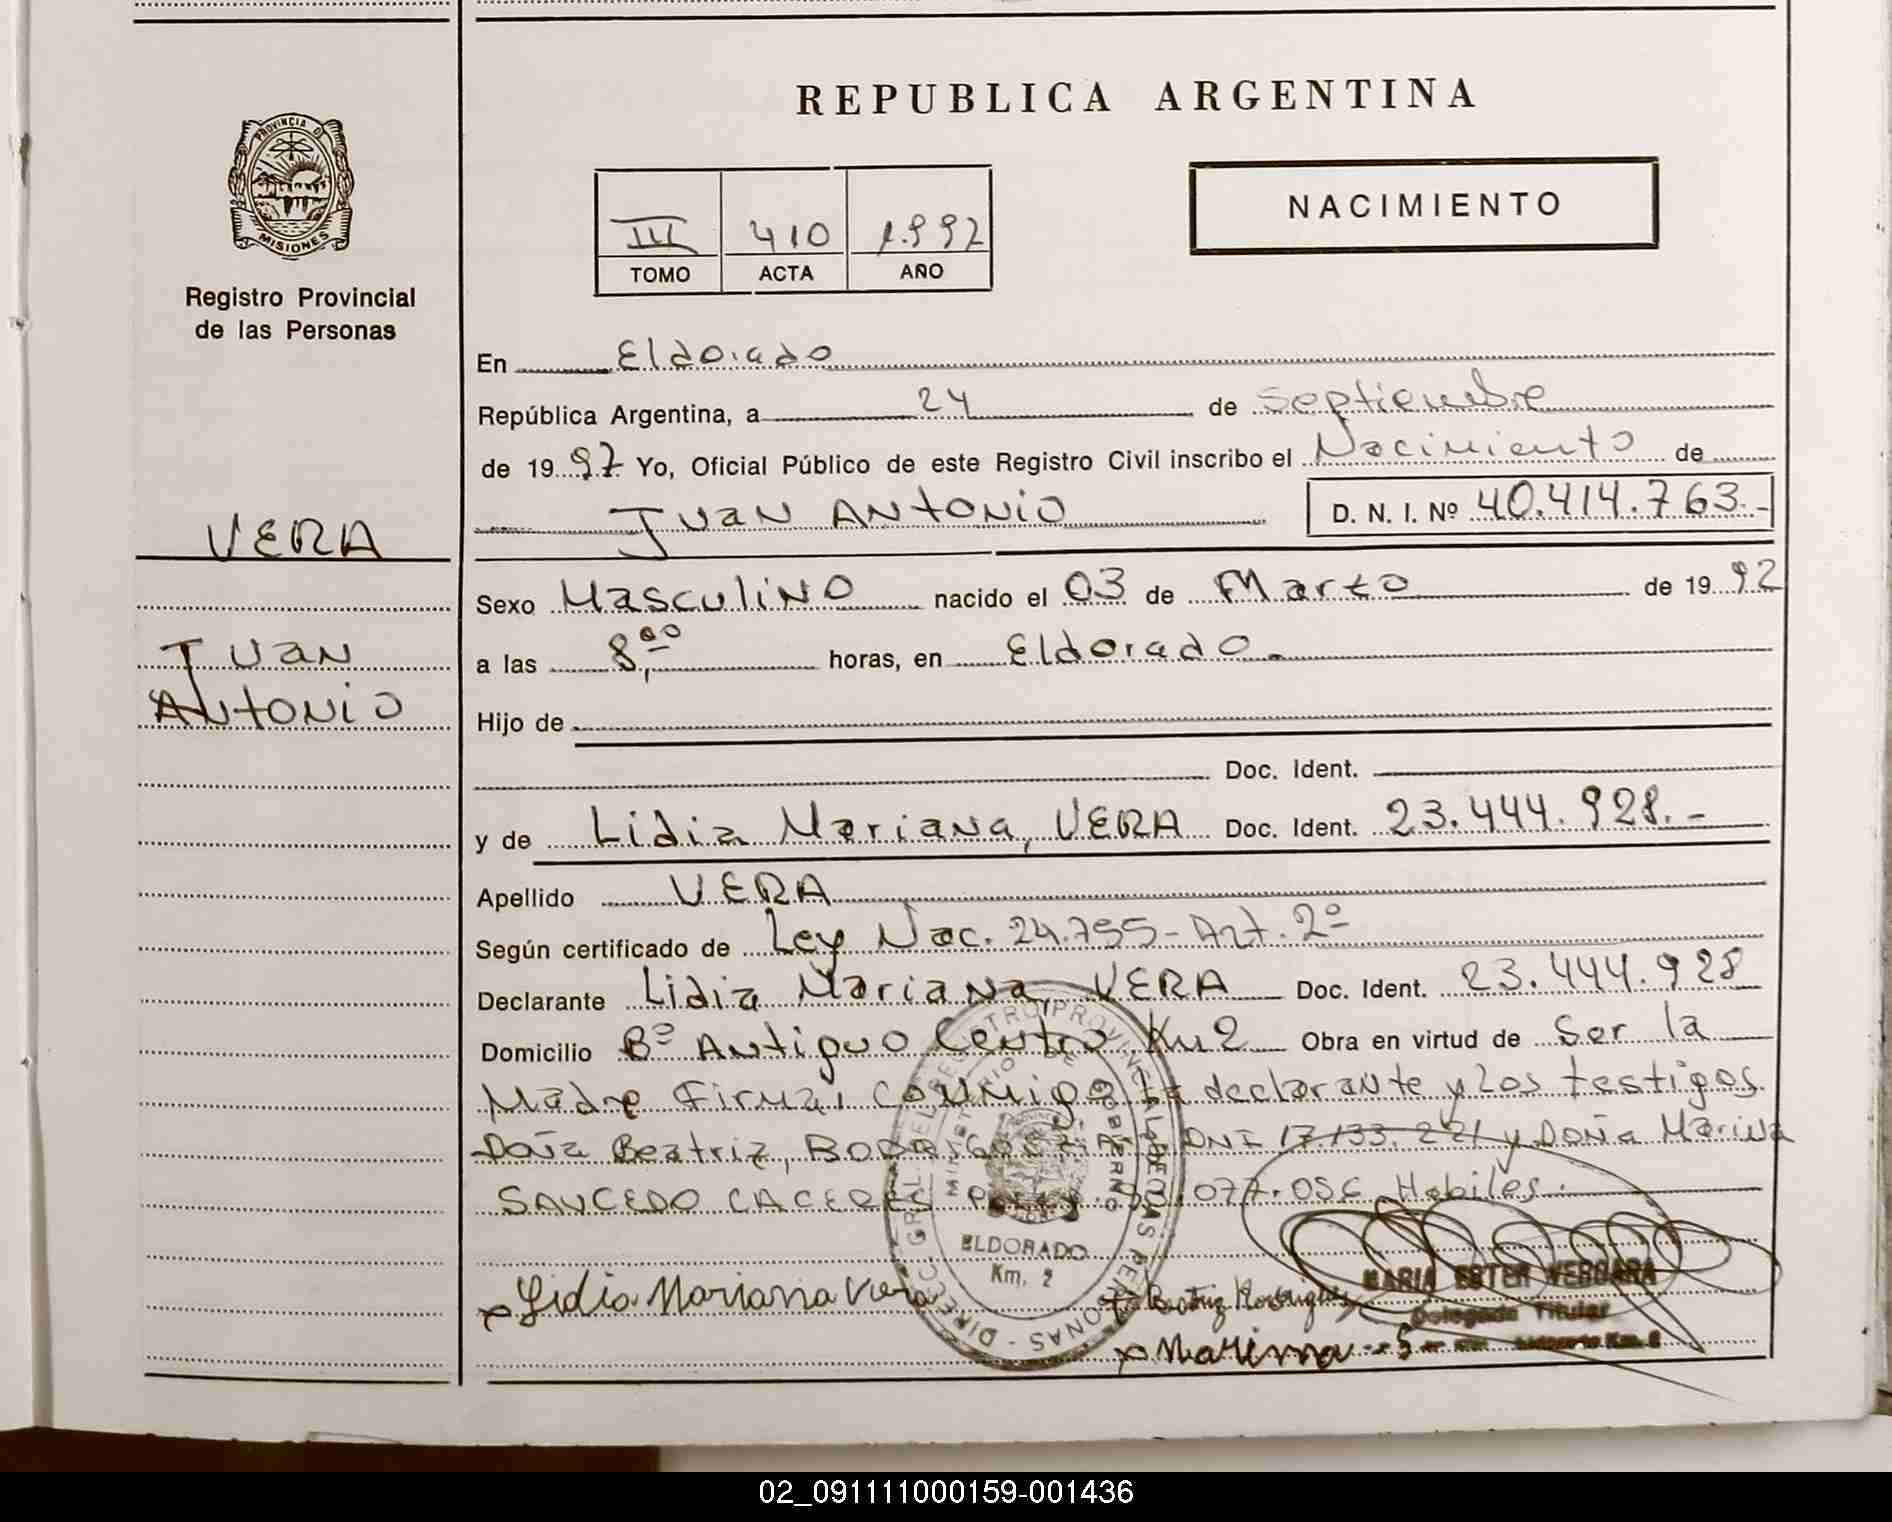 REPUBLICA ARGENTINA
PROVINCIA D
MISIONES
Registro Provincial
de las Personas
NACIMIENTO
III 410 1.997
TOMO ACTA AÑO
En Eldorado
República Argentina, a 24 de septiembre
de 1997 Yo, Oficial Público de este Registro Civil inscribo el Nacimiento de
Juan Antonio D. N. I. Nº 40.414.763.-
VERA
Juan
Antonio
Sexo Masculino nacido el 03 de Marzo de 1992
a las 8,00 horas, en Eldorado.
Hijo de
Doc. Ident.
y de Lidia Mariana, VERA Doc. Ident. 23.444.928.-
Apellido VERA
Según certificado de Ley Nac. 24.755- Art. 2º
Declarante Lidia Mariana, VERA Doc. Ident. 23.444.928
Domicilio Bº Antiguo Centro Km 2 Obra en virtud de Ser la
Madre Firma, conmigo la declarante y los testigos
Doña Beatriz, DNI 17.133.221 y Doña Marina
SAUCEDO CACERES 077.056 Habiles.
ELDORADO
Km. 2
x Lidia Mariana Vera
x Beatriz Rodriguez
x Marina
MARIA ESTER VERGARA
Delegada Titular
02_091111000159-001436